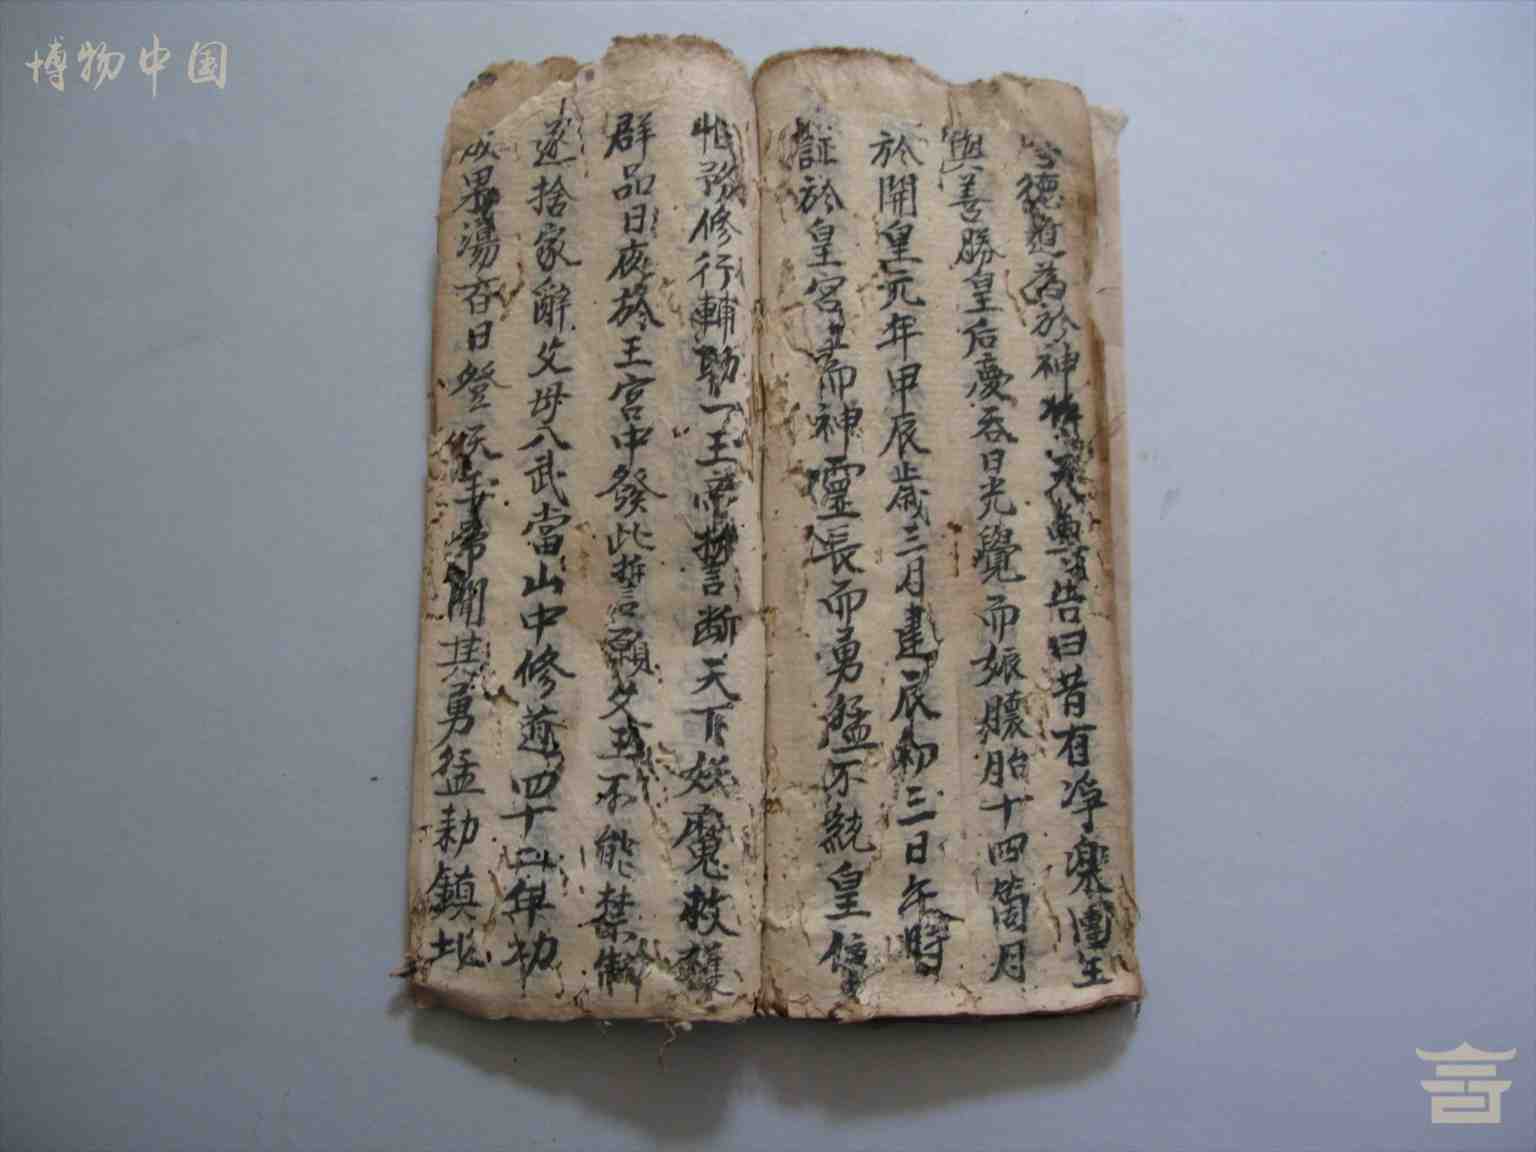 博物中国
德道為於神將天真告曰昔有淨樂國王
與善勝皇后夢吞日光覺而娠懷胎十四箇月
於開皇元年甲辰歲三月建辰初三日午時
誕於皇宮生而神靈長而勇猛不統皇位
惟務修行輔助一王帝誓言断天下妖魔救護
群品日夜於王宮中發此誓言願父王不能禁制
遂捨家辭父母入武當山中修道四十二年功
成果滿吞日登天玉帝聞其勇猛勅鎮北